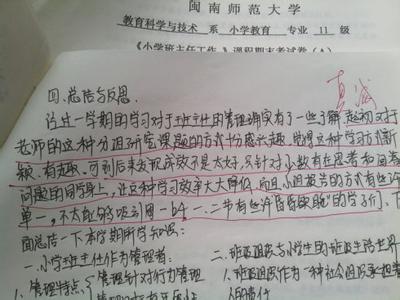 闽南师范大学
教育科学与技术 系 小学教育 专业 11 级
《小学班主任工作》课程期末考试卷(A)
四、总结与反思
真诚
经过一学期的学习对于班主任的管理确实有一些了解,起初对于
老师的这种分组研究课题的方式十分感兴趣,觉得这种学习方式新
颖、有趣,可到后来发现成效不是太好,只针对小数有在思考和回答
问题的同学身上,让这种学习效率大大降低,而且小组报告的方式有些许
单一,不太能够吸引同一些
二节有些许昏昏欲睡的学子们、下
面总结一下本学期所学知识:
一、小学班主任作为管理者:
1. 管理特点 管理针对行为管理
二、班级组织与小学生的班级生活世界
1. 班级组织作为一种社会组织承担着